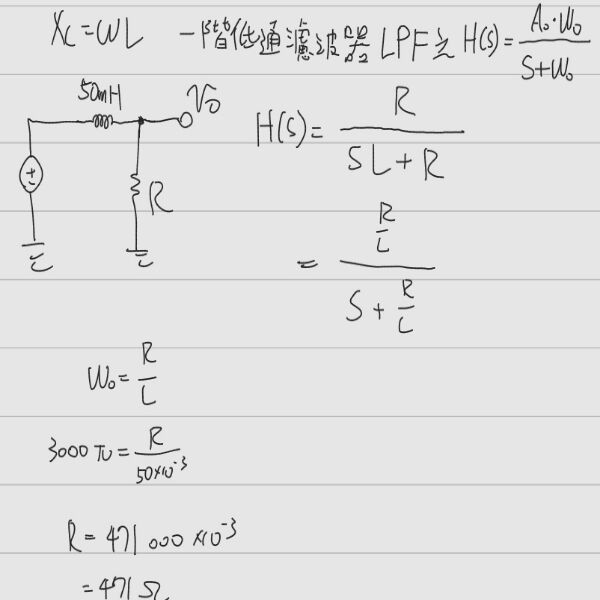 Xc=WL 一階低通濾波器 LPF之 H(s)= A₀·W₀ / S+W₀
50mH V₀
H(s)= R / SL+R
R
= R/L / S+R/L
W₀= R/L
3000π= R / 50×10⁻³
R= 471000×10⁻³
=471Ω